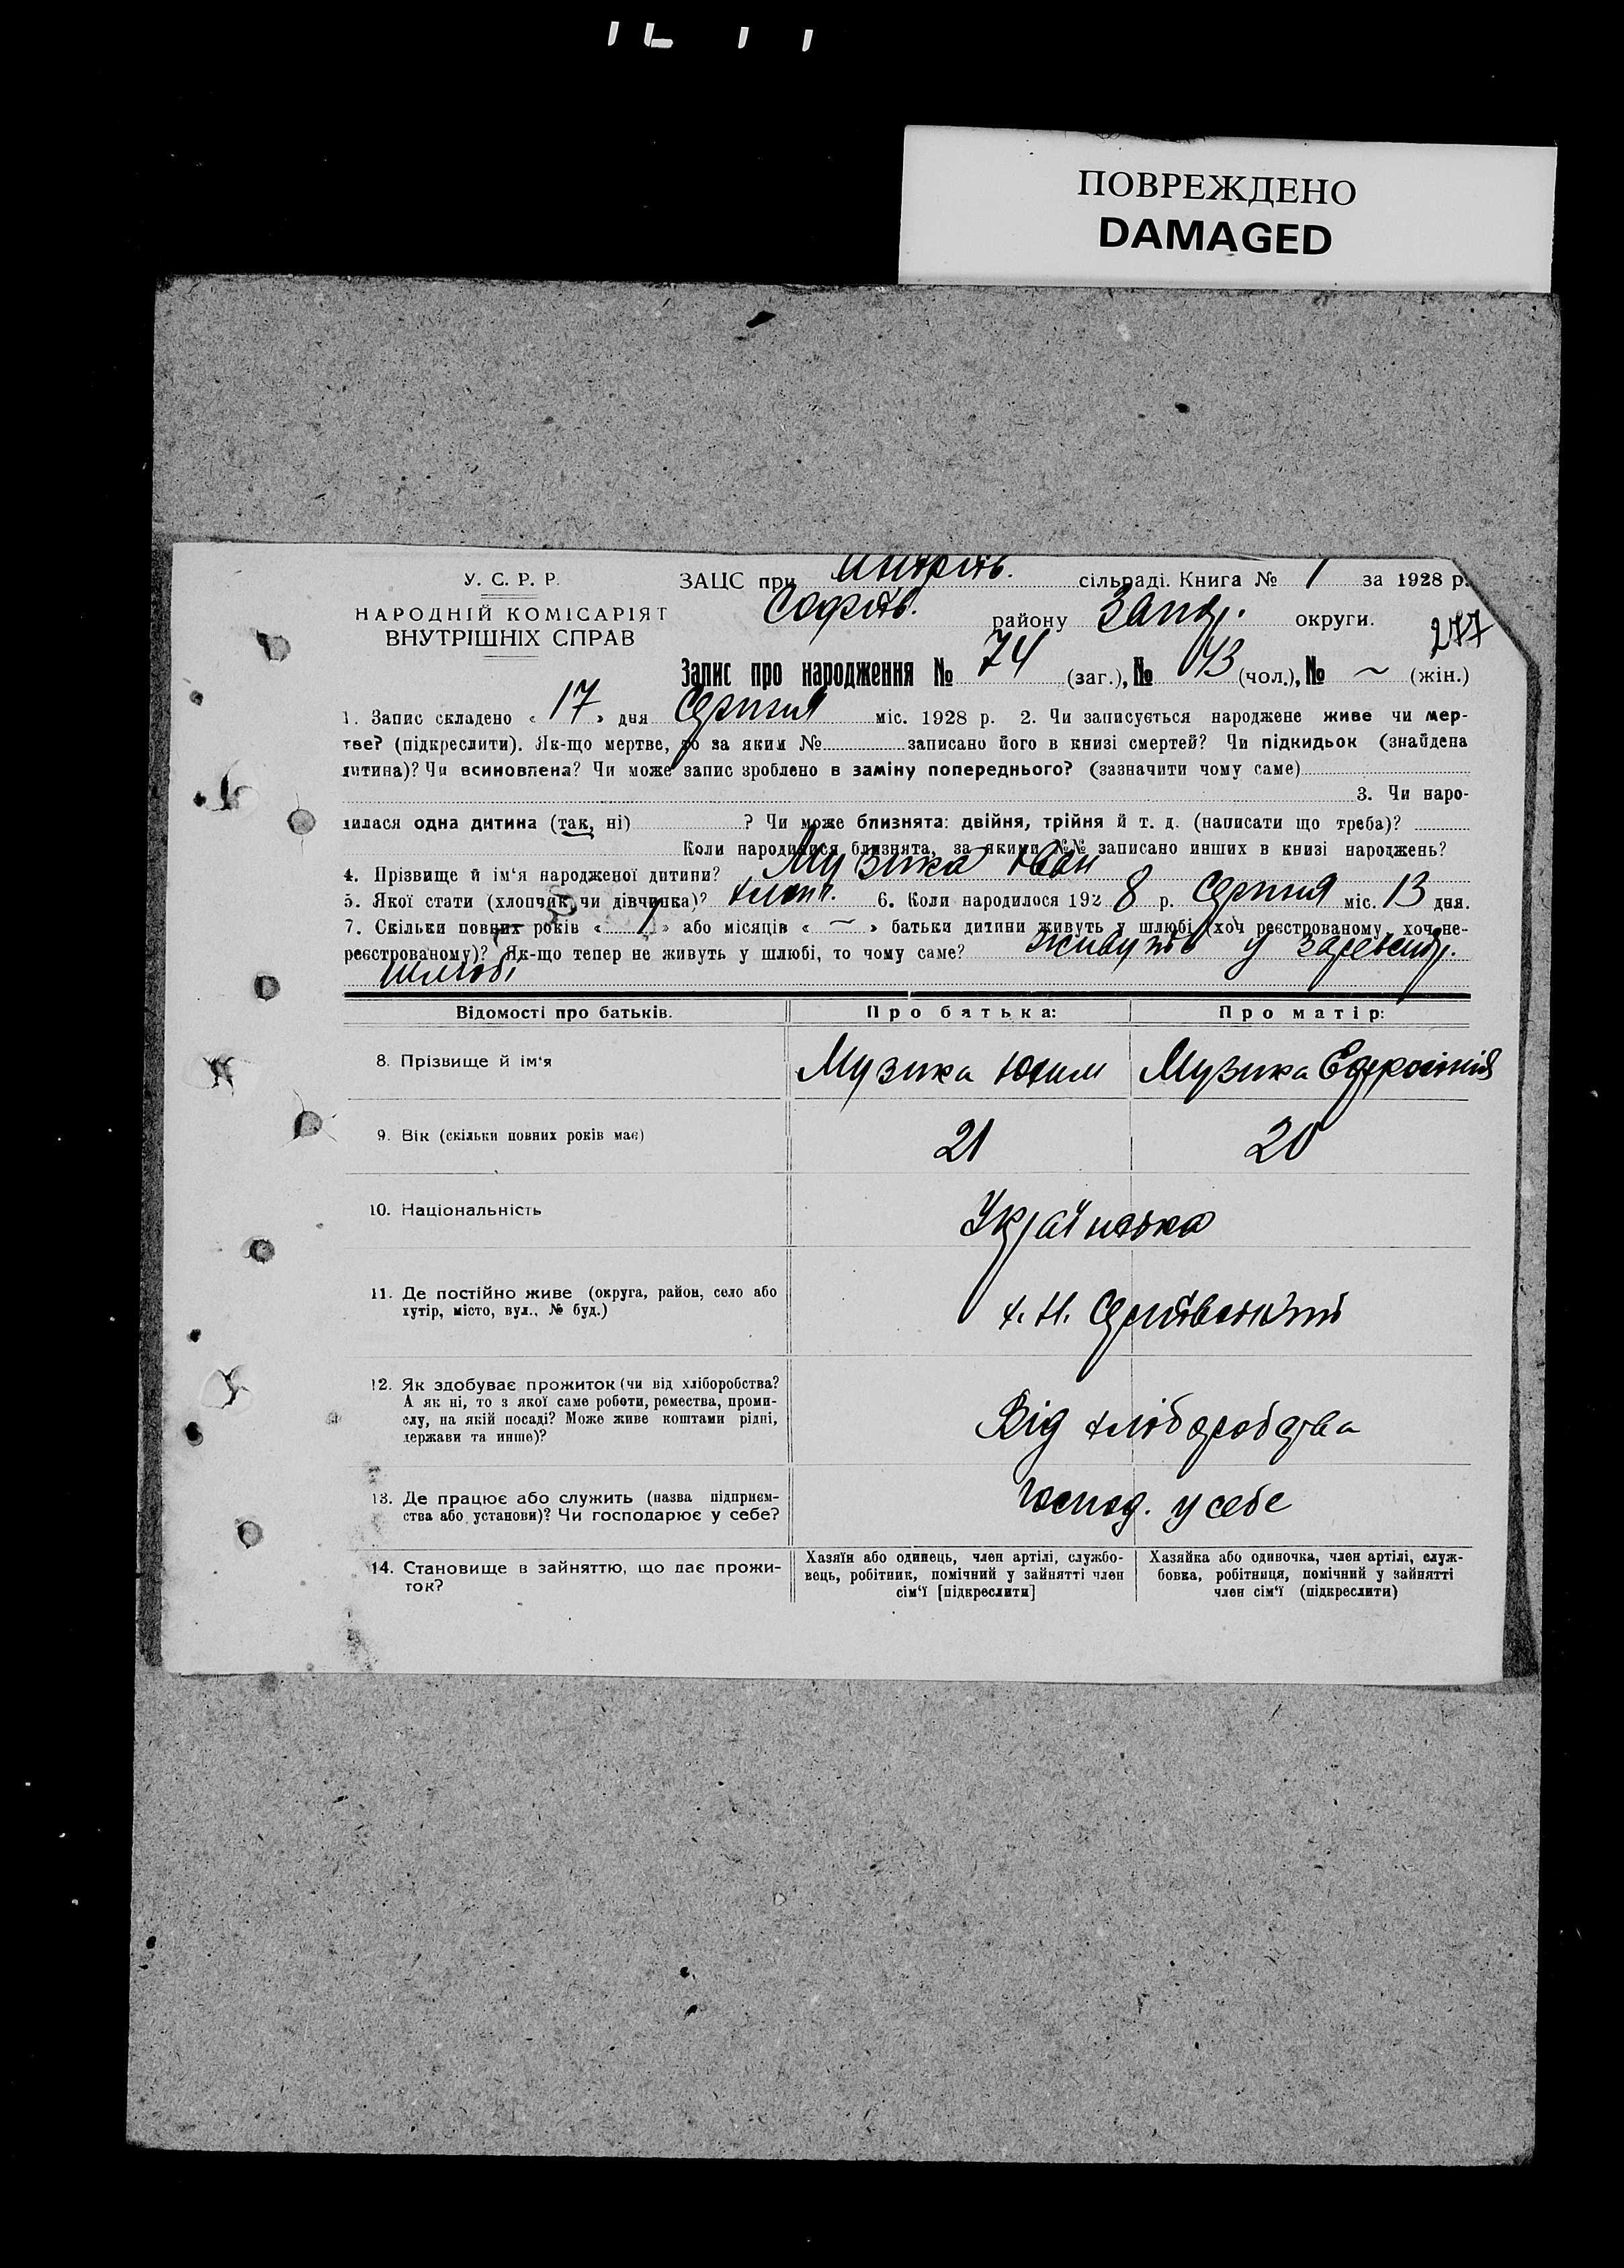 ПОВРЕЖДЕНО
DAMAGED
У. С. Р. Р.
НАРОДНІЙ КОМІСАРІЯТ
ВНУТРІШНІХ СПРАВ
ЗАЦС при сільраді. Книга № 1 за 1928 р.
Софіїв. району Запор. округи.
277
Запис про народження № 74 (заг.), № 43 (чол.), № ~ (жін.)
1. Запис складено « 17 » дня Серпня міс. 1928 р. 2. Чи записується народжене живе чи мер-
тве? (підкреслити). Як-що мертве, то за яким № записано його в книзі смертей? Чи підкидьок (знайдена
дитина)? Чи всиновлена? Чи може запис зроблено в заміну попереднього? (зазначити чому саме)
3. Чи наро-
дилася одна дитина (так, ні) ? Чи може близнята: двійня, трійня й т. д. (написати що треба)?
Коли народилися близнята, за якими №№ записано инших в книзі народжень?
4. Прізвище й ім‘я народженої дитини? Музика Іван
5. Якої стати (хлопчик чи дівчинка)? хлопч. 6. Коли народилося 192 8 р. Серпня міс. 13 дня.
7. Скільки повних років « 1 » або місяців « ~ » батьки дитини живуть у шлюбі (хоч реєстрованому, хоч не-
реєстрованому)? Як-що тепер не живуть у шлюбі, то чому саме? живуть у
шлюбі
Відомості про батьків. Про батька: Про матір:
8. Прізвище й ім‘я Музика Юхим Музика Ефросинія
9. Вік (скільки повних років має) 21 20
10. Національність Українська
11. Де постійно живе (округа, район, село або
хутір, місто, вул., № буд.)
х. Н.
12. Як здобуває прожиток (чи від хліборобства?
А як ні, то з якої саме роботи, ремества, проми-
слу, на якій посаді? Може живе коштами рідні,
держави та инше)?
Від хліборобства
13. Де працює або служить (назва підприєм-
ства або установи)? Чи господарює у себе?
Господ. у себе
14. Становище в зайняттю, що дає прожи-
ток?
Хазяїн або одинець, член артілі, службо-
вець, робітник, помічний у зайнятті член
сім‘ї [підкреслити]
Хазяйка або одиночка, член артілі, служ-
бовка, робітниця, помічний у зайнятті
член сім‘ї (підкреслити)